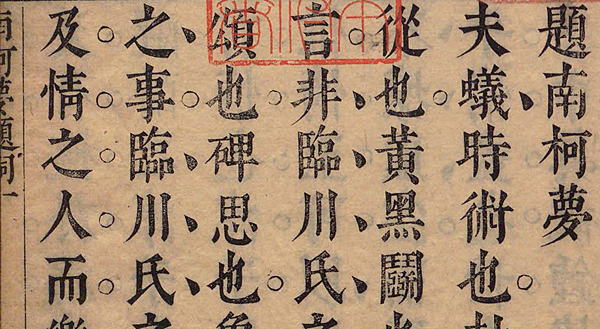 題南柯夢
夫蟻時術也
從也黃黑鬭也
言非臨川氏之
頌也碑思也象
之事臨川氏之
及情之人而樂
南柯夢題詞一